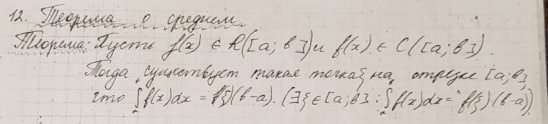 12. Теорема о среднем.
Теорема: Пусть f(x) ∈ R([a; b]) и f(x) ∈ C([a; b]).
Тогда существует такая точка ξ на отрезке [a; b],
что ∫ₐᵇ f(x)dx = f(ξ)(b-a). (∃ξ ∈ [a; b] : ∫ₐᵇ f(x)dx = f(ξ)(b-a)).